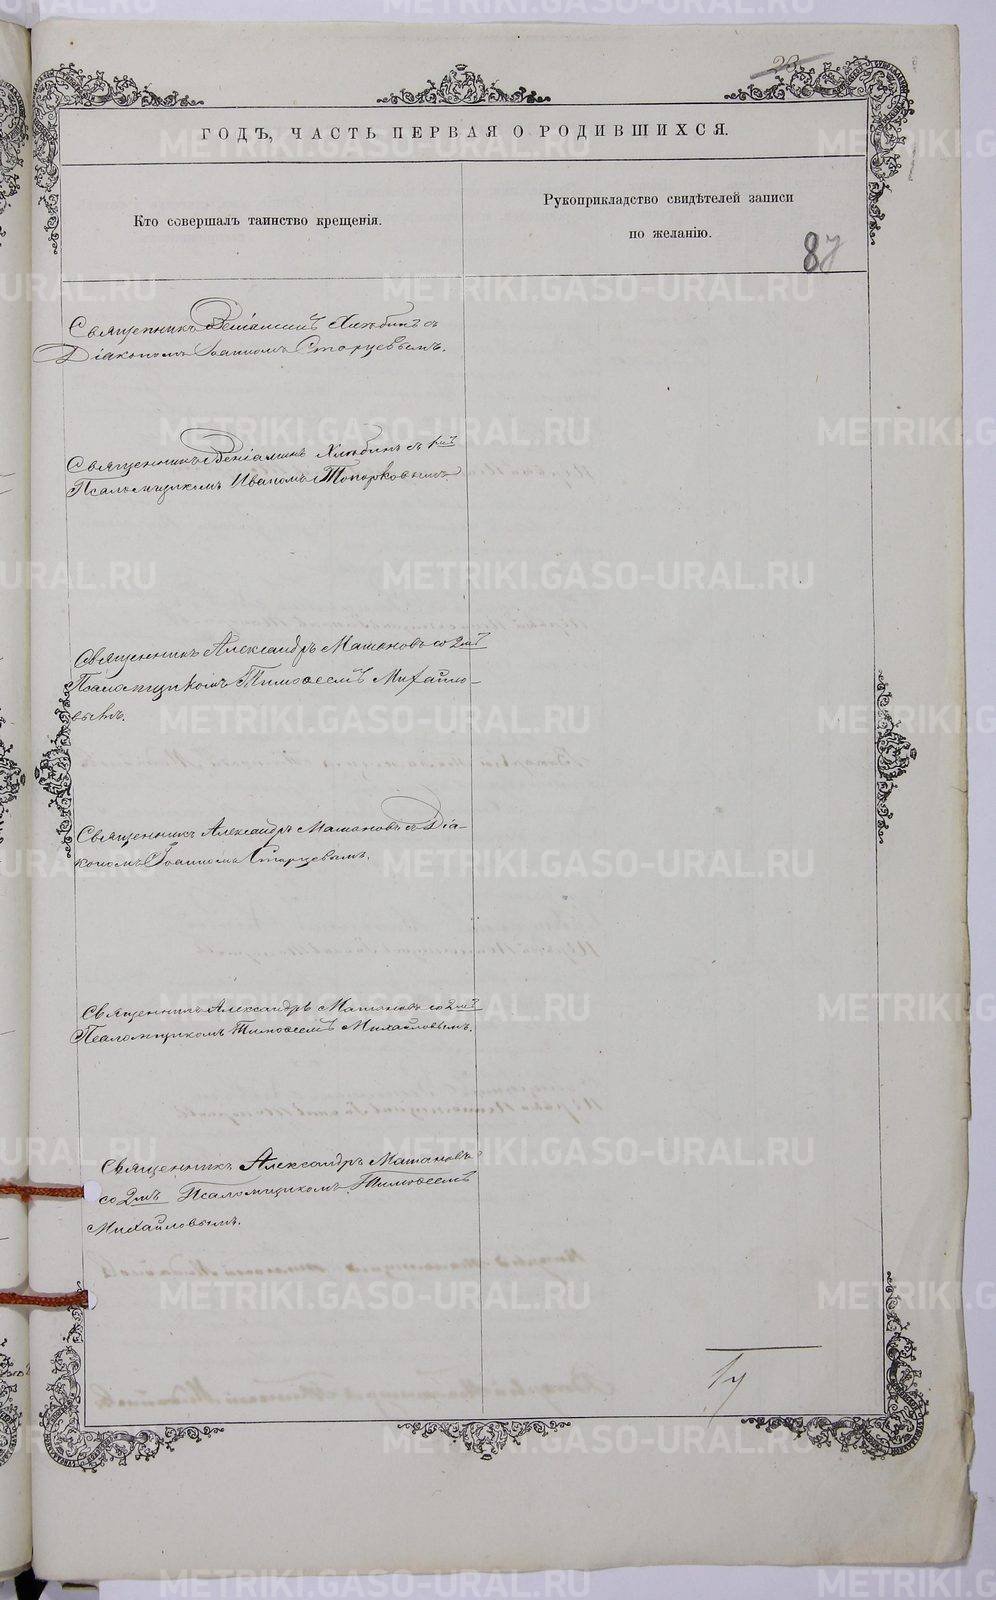 23
ГОДЪ, ЧАСТЬ ПЕРВАЯ О РОДИВШИХСЯ.
Кто совершалъ таинство крещенія.
Рукоприкладство свидѣтелей записи
по желанію.
87
Священникъ Веніаминъ Хлѣбинъ съ
Діакономъ Іоанномъ Старцевымъ.
Священникъ Веніаминъ Хлѣбинъ съ 1мъ
Псаломщикомъ Иваномъ Топорковымъ
Священникъ Александръ Матановъ со 2мъ
Псаломщикомъ Тимоѳеемъ Михайло-
вымъ.
Священникъ Александръ Матановъ съ Діа-
кономъ Іоанномъ Старцевымъ.
Священникъ Александръ Матановъ со 2мъ
Псаломщикомъ Тимоѳеемъ Михайловымъ.
Священникъ Александръ Матановъ
со 2мъ Псаломщикомъ Тимоѳеемъ
Михайловымъ.
METRIKI.GASO-URAL.RU